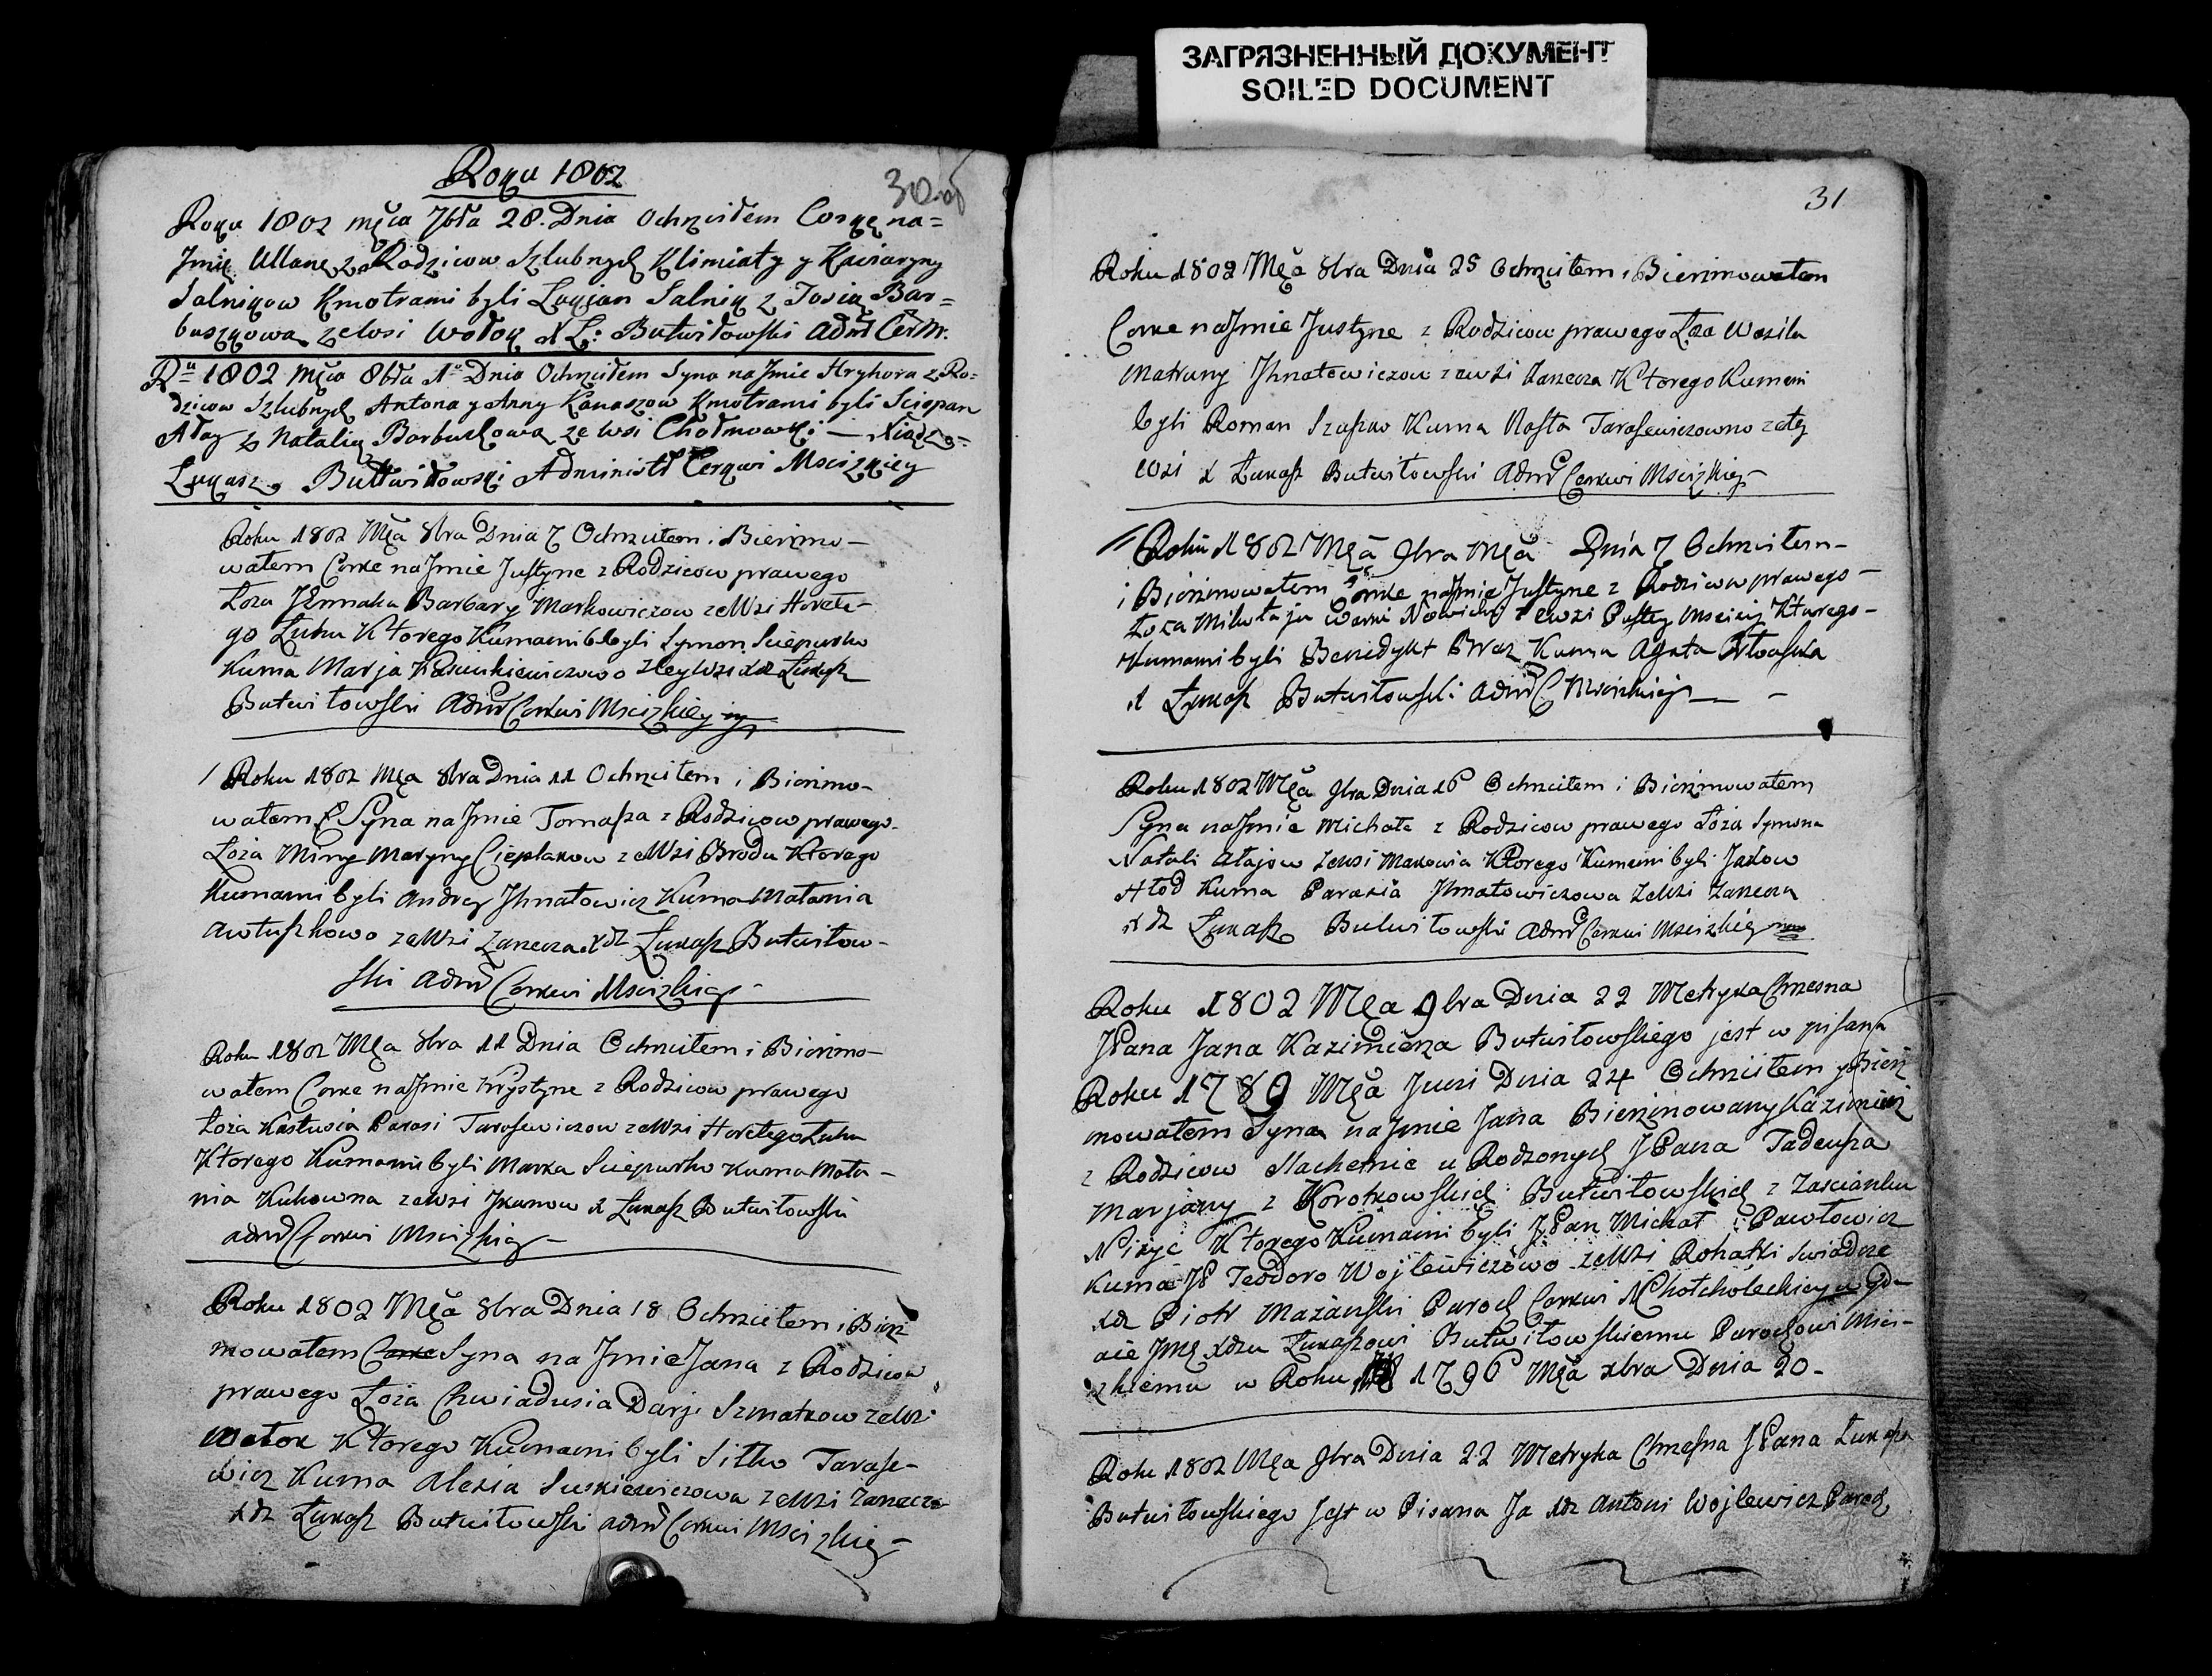 ЗАГРЯЗНЕННЫЙ ДОКУМЕНТ
SOILED DOCUMENT
Roku 1802
30 об
Roku 1802 męca 7bra 28. Dnia Ochrzciłem Corkę na=
Jmię Ullanę z Rodzicow Szlubnych Klimiaty y Kaciaryny
Salnikow Kmotrami byli Łukjan Salnik z Zosią Bar=
buszkową ze wsi Wołok X Ł: Butwiłowski Admr Cer Mr.
Ru 1802 męca 8bra 1o Dnia Ochrzciłem Syna na Jmie Hryhora z Ro=
dzicow Szlubnych Antona y Anny Kanaszow Kmotrami byli Sciepan
Ałay z Natalią Barbuszkową ze wsi Chołmowki — Xiądz=
Łukasz Butwiłowski Administr Cerkwi Msciżkiey
Roku 1802 Męa 8bra Dnia 7 Ochrzciłem i Bierzmo—
wałem Corke na Jmie Justyne z Rodzicow prawego
Łoza Jermaka Barbary Markowiczow ze Wsi Horełe-
go Ługu Ktorego Kumami byli Symon Sciepurko
Kuma Marja ze Wsi Xdz Łukasz
Butwiłowski Admr Cerkwi Msciżkiey
Roku 1802 Męa 8bra Dnia 11 Ochrzciłem i Bierzmo-
wałem Syna na Jmie Tomasza z Rodzicow prawego
Łoża Miny Maryny Cieplakow ze Wsi Brodu Ktorego
Kumami byli Andrey Jhnatowicz Kuma Małania
Awtuszkowo ze Wsi Zarzecza Xdz Łukasz Butwiłow-
ski Admr Cerkwi Msciżkiey-
Roku 1802 Męa 8bra 11 Dnia Ochrzciłem i Bierzmo-
wałem Corke na Jmie Krystyne z Rodzicow prawego
Łoża Kastusia Parasi Tarasewiczow ze Wsi Horełego Ługu
Ktorego Kumami byli Marka Sciepurko Kuma Mała-
nia Kukowna ze Wsi X Łukasz Butwiłowski
admr Cerkwi Msciżkiey-
Roku 1802 Męa 8bra Dnia 18 Ochrzciłem i Bierz
mowałem Corke Syna na Jmie Jana z Rodzicow
prawego Łoża Chwiadusia Darji Szmatkow ze Wsi
Wołok Ktorego Kumami byli Sitko Tarase-
wicz Kuma Alexia Suszkiewiczowa ze Wsi Zarzecza
Xdz Łukasz Butwiłowski admr Cerkwi Msciżkiey-
31
Roku 1802 Męa 8bra Dnia 25 Ochrzciłem i Bierzmowałem
Corke na Jmie Justyne z Rodzicow prawego Łoza Wasila
Matruny Jhnatowiczow ze wsi Zarzecza Ktorego Kumami
byli Roman Szuszko Kuma Nasta Tarasewiczowno z tey
wsi X Łukasz Butwiłowski Admr Cerkwi Msciżkiey-
Roku 1802 Męa 9bra Męa Dnia 7 Ochrzciłem-
i Bierzmowałem Corke na Jmie Justyne z Rodzicow prawego-
Łoza Mikołaja Warki Nowickich ze wsi Pustey Msciży Ktorego-
Kumami byli Benedykt Kuma Agata
X Łukasz Butwiłowski Admr C Msciżkiey —
Roku 1802 Męa 9bra Dnia 16 Ochrzciłem i Bierzmowałem
Syna na Jmie Michała z Rodzicow prawego Łoża Symona
Natali Ałajow ze wsi Makowia Ktorego Kumami byli Jakow
Hłod Kuma Paraxia Jhnatowiczowa ze Wsi Zarzecza
Xdz Łukasz Butwiłowski Admr Cerkwi Msciżkiey
Roku 1802 Męa 9bra Dnia 22 Metryka Chrzesna
JPana Jana Kazimierza Butwiłowskiego jest w pisana
Roku 1789 Męa Juni Dnia 24 Ochrzciłem y Bierz
mowałem Syna na Jmie Jana Bierzmowany Kazimierz
z Rodzicow Slachetnie u Rodzonych JPana Tadeusza
Marjany z Korotkowskich Butwiłowskich z Zascianku
Niżyc Ktorego Kumami byli JPan Michał Pawłowicz
Kuma JP Teodoro Wojlewiczowo ze Wsi Rohatki Swiadcze
Xdz Piotr Mażański Paroch Cerkwi Chołcholeckiey
Jmę Xdzu Łukaszowi Butwiłowskiemu Parochowi Msci-
zkiemu w Roku 1796 Męa xbra Dnia 20-
Roku 1802 Męa 9bra Dnia 22 Metryka Chrzesna JPana Łukasza
Butwiłowskiego Jest w Pisana Ja Xdz Antoni Wojlewicz Paroch